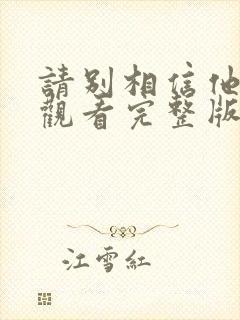 請別相信他
觀看完整版
江雪紅